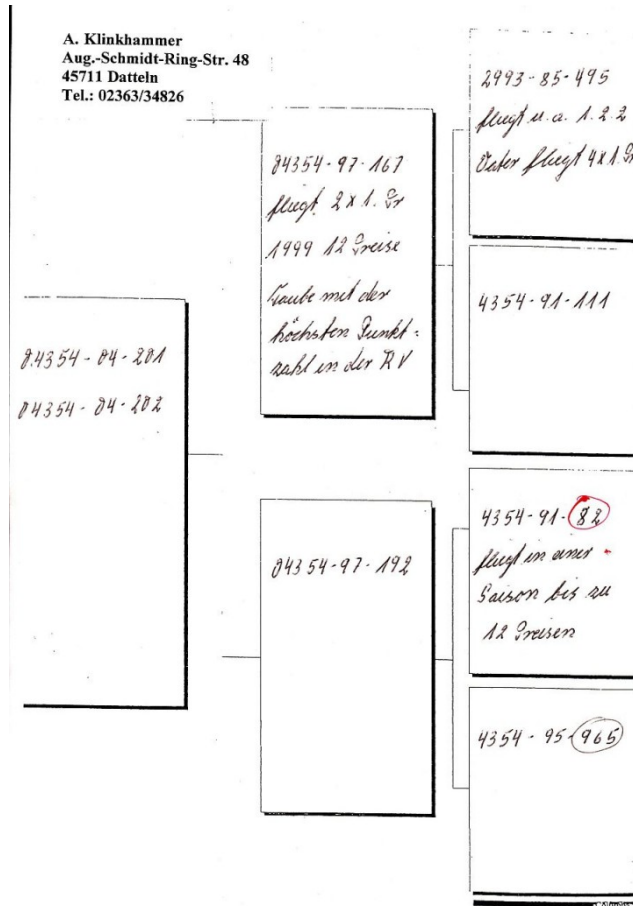 A. Klinkhammer
Aug.-Schmidt-Ring-Str. 48
45711 Datteln
Tel.: 02363/34826
04354-04-201
04354-04-202
04354-97-167
fliegt 2 x 1. Pr
1999 12 Preise
Taube mit der
höchsten Punkt=
zahl in der RV
04354-97-192
2993-85-495
fliegt u. a. 1. 2. 2
Vater fliegt 4 x 1. Pr
4354-91-111
4354-91-82
fliegt in einer
Saison bis zu
12 Preisen
4354-95-965